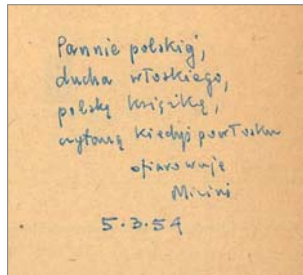 Pannie polskiej,
ducha włoskiego,
polską książkę,
czytaną kiedyś po włosku
ofiarowuję
5.3.54